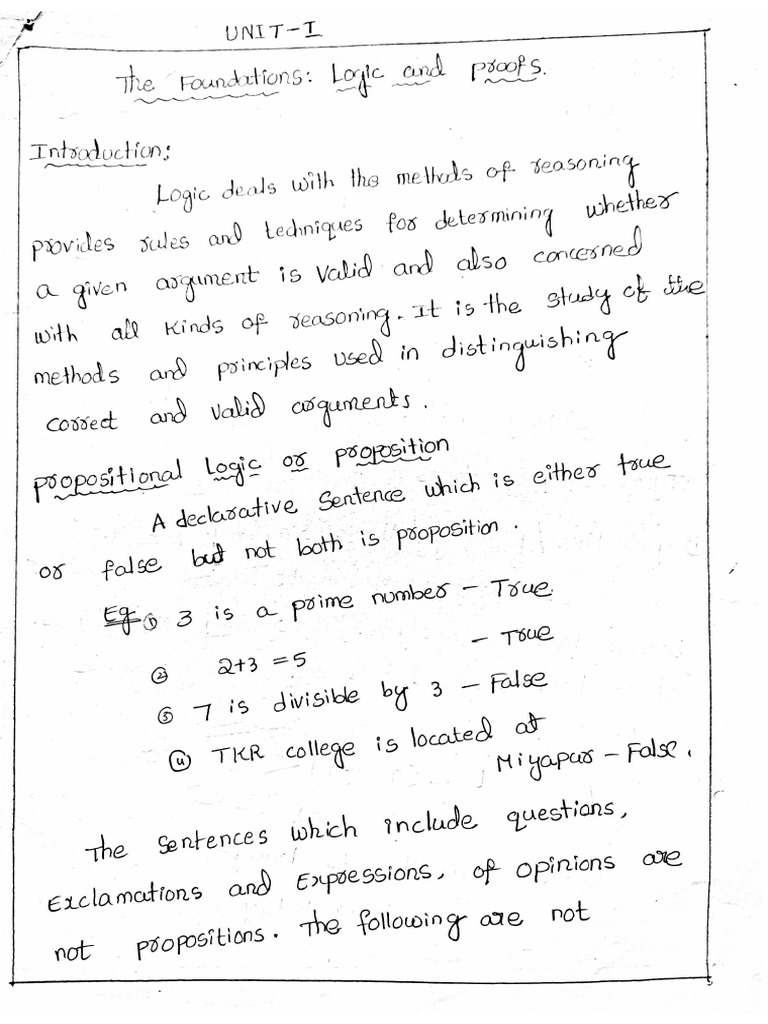 UNIT-I
The Foundations: Logic and proofs.
Introduction:
Logic deals with the methods of reasoning
provides rules and techniques for determining whether
a given argument is valid and also concerned
with all kinds of reasoning. It is the study of the
methods and principles used in distinguishing
correct and valid arguments.
propositional Logic or proposition
A declarative sentence which is either true
or false but not both is proposition.
Eg ① 3 is a prime number - True.
② 2+3=5 - True
③ 7 is divisible by 3 - False
④ TKR college is located at
Miyapur - False.
The sentences which include questions,
Exclamations and Expressions, of opinions are
not propositions. The following are not